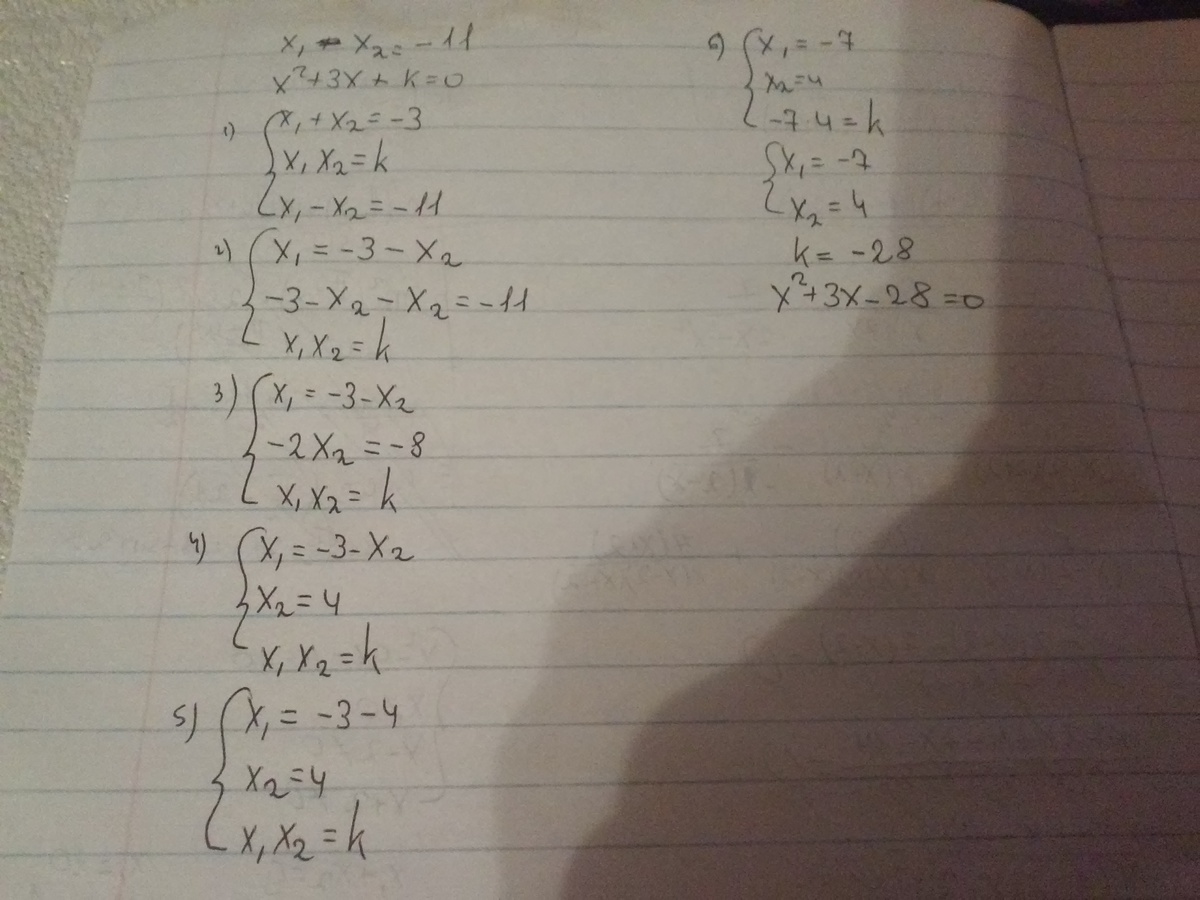 x₁ - x₂ = -11
x² + 3x + k = 0
1) { x₁ + x₂ = -3
x₁ x₂ = k
x₁ - x₂ = -11
2) { x₁ = -3 - x₂
-3 - x₂ - x₂ = -11
x₁ x₂ = k
3) { x₁ = -3 - x₂
-2x₂ = -8
x₁ x₂ = k
4) { x₁ = -3 - x₂
x₂ = 4
x₁ x₂ = k
5) { x₁ = -3 - 4
x₂ = 4
x₁ x₂ = k
6) { x₁ = -7
x₂ = 4
-7 · 4 = k
{ x₁ = -7
x₂ = 4
k = -28
x² + 3x - 28 = 0